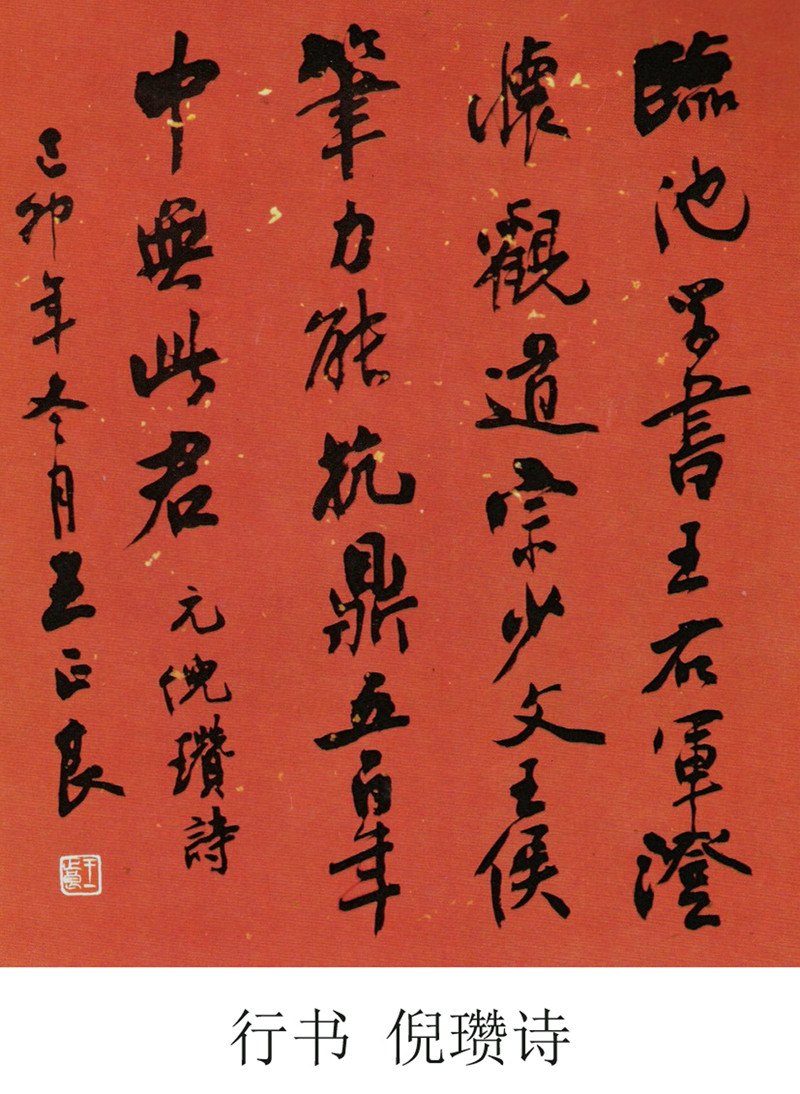 臨池学書王右軍澄
懷觀道宗少文王侯
筆力能抗鼎五百年
中無此君
元倪瓚詩
己卯年冬月王正良
行书 倪瓒诗